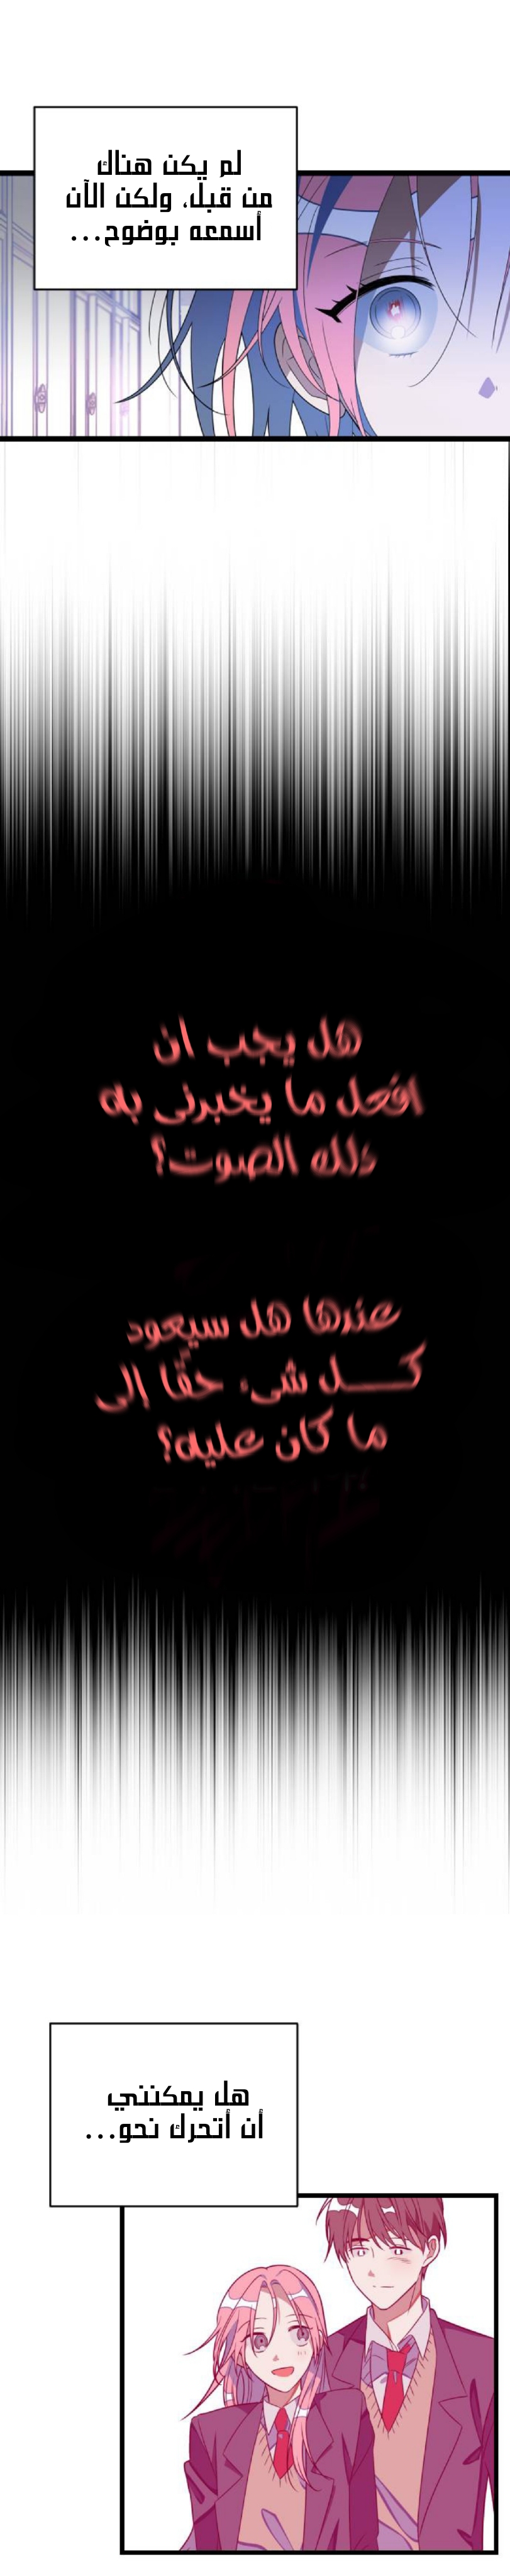 لم يكن هناك
من قبل، ولكن الآن
أسمعه بوضوح...
هل يجب ان
افعل ما يخبرنى به
ذلك الصوت؟
عندها هل سيعود
كـــل شىء حقًا إلى
ما كان عليه؟
هل يمكنني
أن أتحرك نحو...